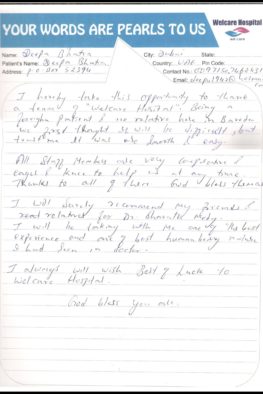 YOUR WORDS ARE PEARLS TO US
Welcare Hospital
Name: Deepa Bhatia City: Dubai State:
Patient's Name: Deepa Bhatia Country: UAE Pin Code:
Address: P.O. Box 52394 Contact No.:
Email:
I hereby take this opportunity to
a team of "Welcare Hospital". Being a
foreign patient & no relative here in Baroda
we first thought it will be difficult, but
it was all smooth & easy.
All Staff Members are very
& hence to help us at any time.
Thanks to all of them God bless them
I will surely recommend my friends &
relatives for Dr. Bharat Mody
I will be with me one of the best
experience and one of best human being nature
I had seen in doctor.
I always will wish Best of Luck to
Welcare Hospital.
God bless you all.